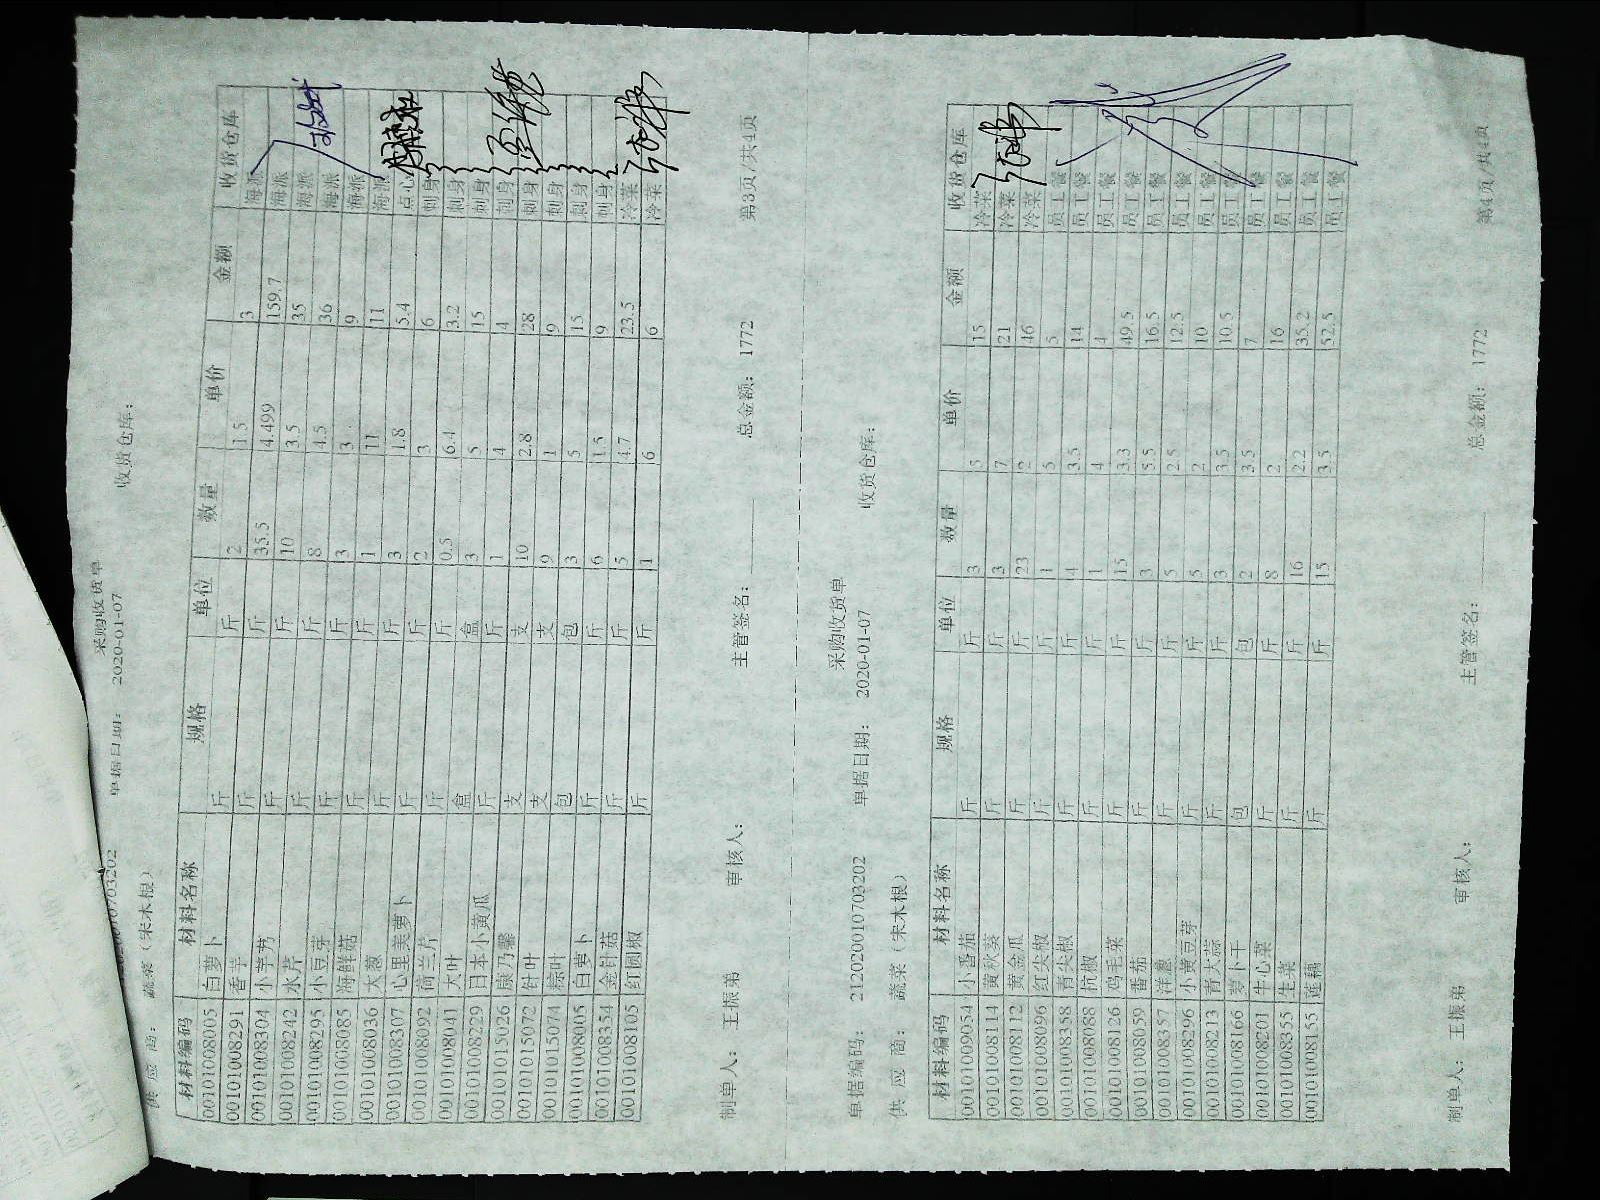 采购收货单
单据日期: 2020-01-07 收货仓库:
供 应 商: 蔬菜（宋木根）
材料编码 材料名称 规格 单位 数量 单价 金额 收货仓库
00101008005 白萝卜 斤 斤 2 1.5 3 海派
00101008291 香芋 斤 斤 35.5 4.499 159.7 海派
00101008304 小芋艿 斤 斤 10 3.5 35 海派
00101008242 水芹 斤 斤 8 4.5 36 海派
00101008295 小豆芽 斤 斤 3 3 9 海派
00101008085 海鲜菇 斤 斤 1 11 11 海派
00101008036 大葱 斤 斤 3 1.8 5.4 点心
00101008307 心里美萝卜 斤 斤 2 3 6 刺身
00101008092 荷兰芹 斤 斤 0.5 6.4 3.2 刺身
00101008041 大叶 盒 盒 3 5 15 刺身
00101008229 日本小黄瓜 斤 斤 1 4 4 刺身
00101015026 康乃馨 支 支 10 2.8 28 刺身
00101015072 针叶 支 支 9 1 9 刺身
00101015074 棕叶 包 包 3 5 15 刺身
00101008005 白萝卜 斤 斤 6 1.5 9 刺身
00101008354 金针菇 斤 斤 5 4.7 23.5 冷菜
00101008105 红圆椒 斤 斤 1 6 6 冷菜
制单人: 王振弟 审核人: 主管签名: 总金额: 1772 第3页/共4页
采购收货单
单据编码: 21202001070320​2 单据日期: 2020-01-07 收货仓库:
供 应 商: 蔬菜（宋木根）
材料编码 材料名称 规格 单位 数量 单价 金额 收货仓库
00101009054 小番茄 斤 斤 3 5 15 冷菜
00101008114 黄秋葵 斤 斤 3 7 21 冷菜
00101008112 黄金瓜 斤 斤 23 2 46 冷菜
00101008096 红尖椒 斤 斤 1 5 5 员工餐
00101008358 青尖椒 斤 斤 4 3.5 14 员工餐
00101008088 杭椒 斤 斤 1 4 4 员工餐
00101008126 鸡毛菜 斤 斤 15 3.3 49.5 员工餐
00101008059 番茄 斤 斤 3 5.5 16.5 员工餐
00101008357 洋葱 斤 斤 5 2.5 12.5 员工餐
00101008296 小黄豆芽 斤 斤 5 2 10 员工餐
00101008213 青大蒜 斤 斤 3 3.5 10.5 员工餐
00101008166 萝卜干 包 包 2 3.5 7 员工餐
00101008201 牛心菜 斤 斤 8 2 16 员工餐
00101008355 生菜 斤 斤 16 2.2 35.2 员工餐
00101008155 莲藕 斤 斤 15 3.5 52.5 员工餐
制单人: 王振弟 审核人: 主管签名: 总金额: 1772 第4页/共4页